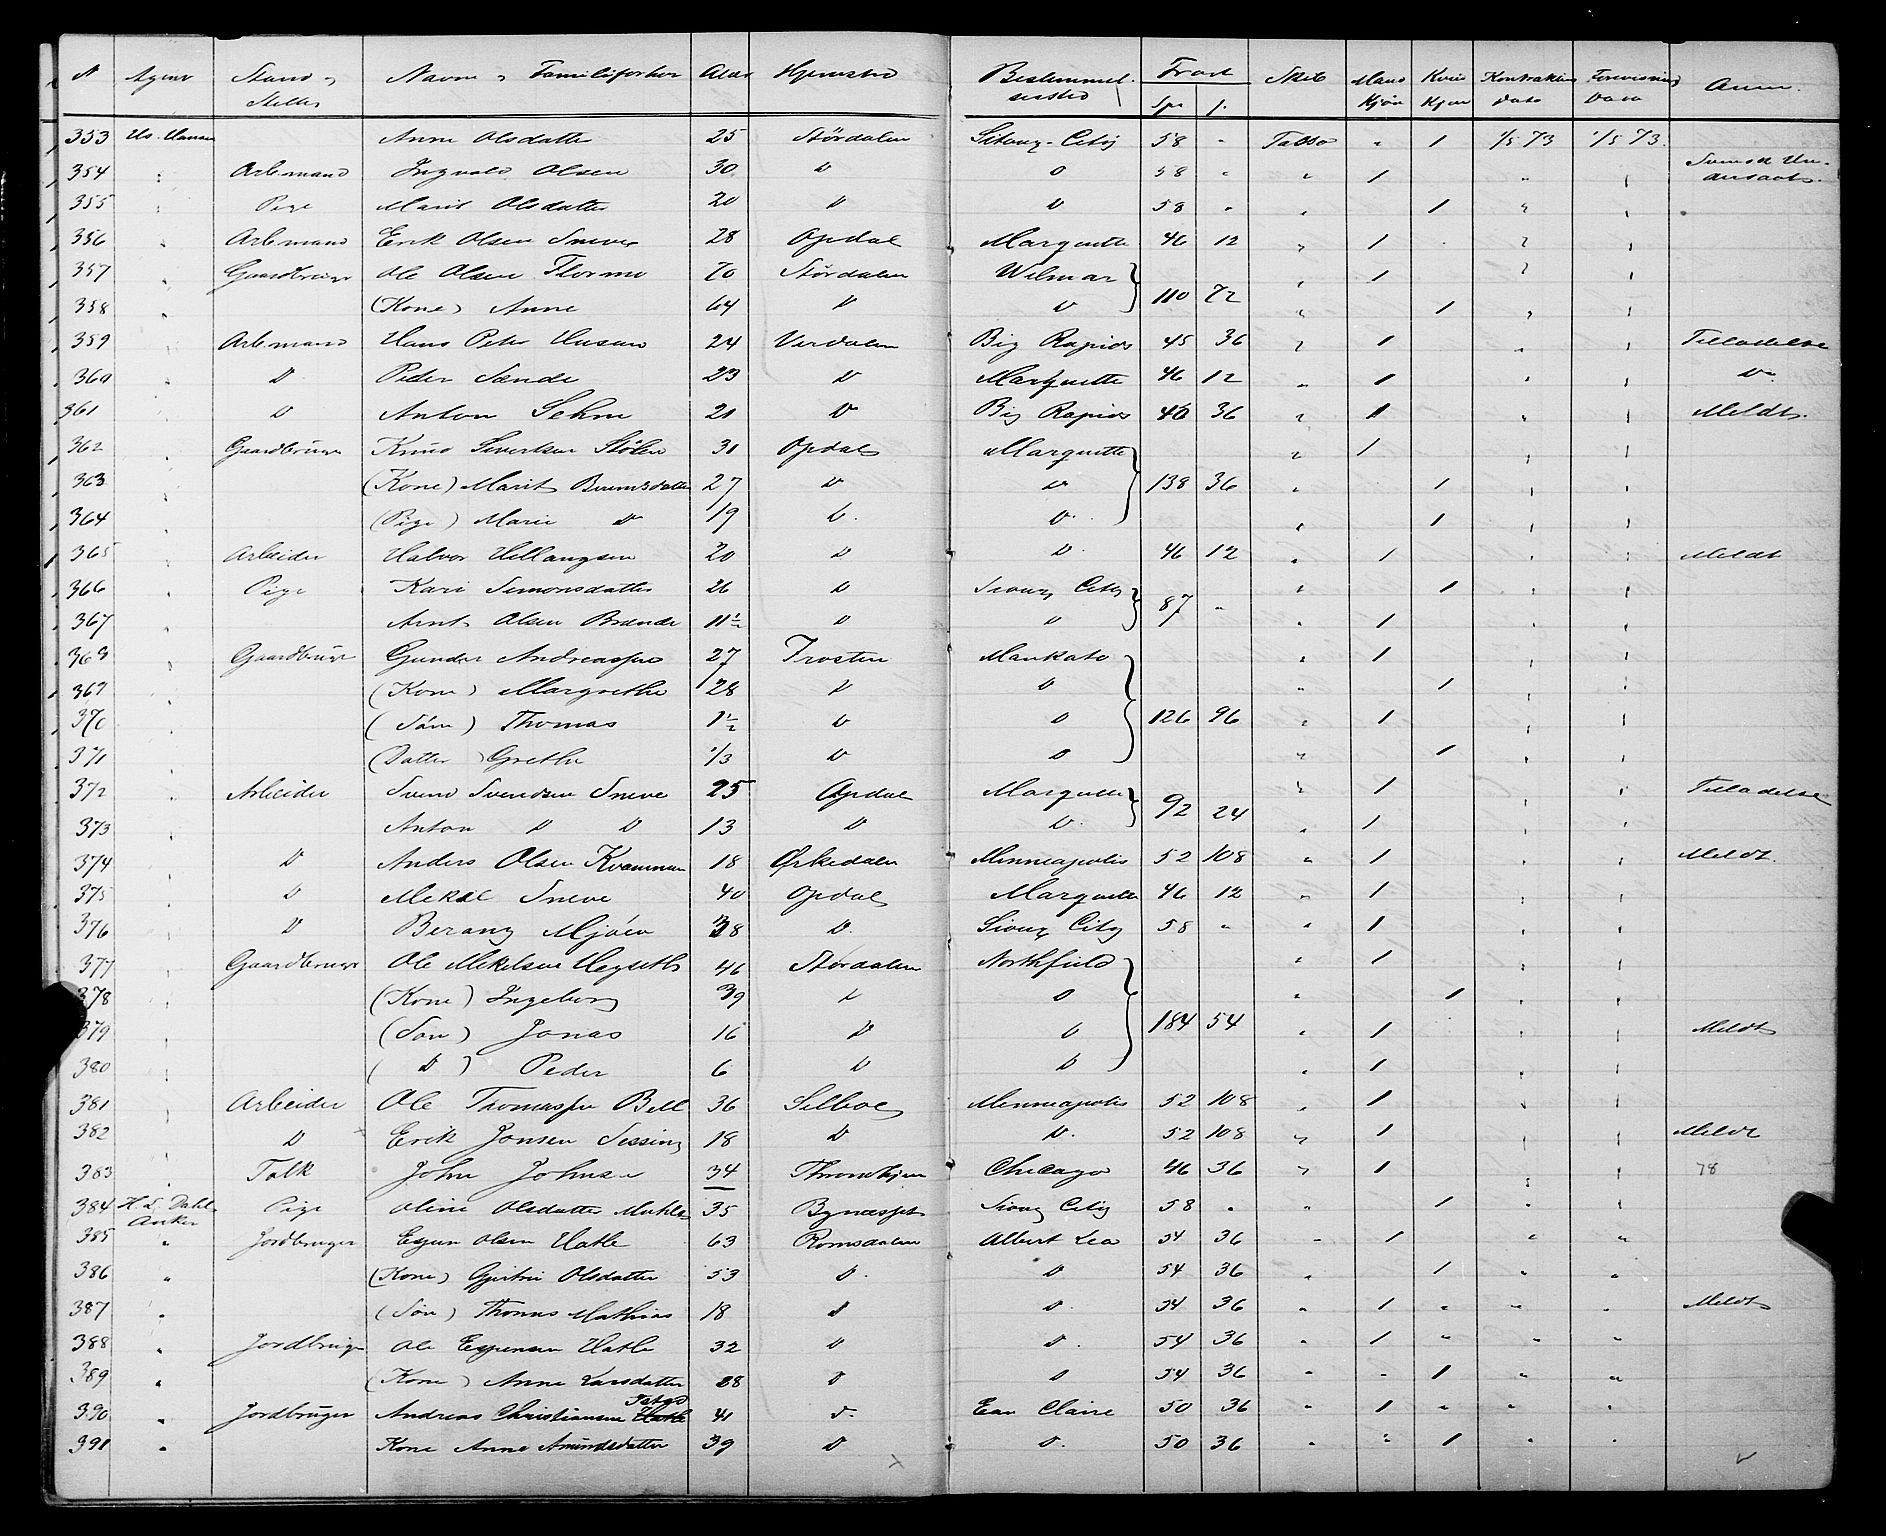 N Agent Stand, Stilling Navn, Familieforhold Alder Hjemsted Bestemmelsessted Fragt Spd ß. Skib Mandkjøn Kvindkjøn Kontraktens Dato Forevisnings Dato Anm.
353 Anne Olsdatter 25 Størdalen City 58 - Tasso " 1 1/5 73 1/5 73.
354 " Arb.mand Ingvald Olsen 30 D D 58 " " 1 " "
355 " Pige Marit Olsdatter 20 D D 58 " " 1 " "
356 " Arb.mand Erik Olsen Sneve 28 Opdal Marquette 46 12 " 1 " "
357 " Gaardbruger Ole Olsen Flormo 70 Størdalen Wilmar " 1 " "
358 " (Kone) Anne 64 D D 110 72 " 1 " "
359 " Arb.mand Hans Peter Husan 24 Verdalen Big Rapids 45 36 " 1 " " Tilladelse
360 " D Peder Sende 23 D Marquette 46 12 " 1 " " D
361 " D Anton 21 D Big Rapids 46 36 " 1 " " Meldt.
362 " Gaardbruger Knud Sivertsen Stølen 31 Opdal Marquette " 1 " "
363 " (Kone) Marit 27 D D 138 36 " 1 " "
364 " (Pige) Marie D 19 D. D. " 1 " "
365 " Arbeider Halvor 20 D D 46 12 " 1 " " Meldt
366 " Pige Kari Simonsdatter 26 D Sioux City " 1 " "
367 " Arnt Olsen Brende 11½ D D 87 " " 1 " "
368 " Gaardbruger Gunder Andreassen 27 Frosten Mankato " 1 " "
369 " (Kone) Margrethe 28 D D " 1 " "
370 " (Søn) Thomas 1½ D D 126 96 " 1 " "
371 " (Datter) Grethe 1/3 D D " 1 " "
372 " Arbeider Svend Svendsen Sneve 25 Opdal Marquette " 1 " " Tilladelse
373 " Anton D D 13 D D. 92 24 " 1 " "
374 " D Anders Olsen Kvammen 18 Ørkedalen Minneapolis 52 108 " 1 " " Meldt.
375 " D Mekal Sneve 40 Opdal Marquette 46 12 " 1 " "
376 " D Mjøen 38 D. Sioux City 58 " " 1 " "
377 " Gaardbruger Ole Mekelsen Hegseth 46 Størdalen Northfield " 1 " "
378 " (Kone) Ingeborg 39 D D " 1 " "
379 " (Søn) Jonas 16 D D 184 54 " 1 " " Meldt
380 " (D) Peder 6 D D " 1 " "
381 " Arbeider Ole Thomassen Bell 36 Selboe Minneapolis 52 108 " 1 " "
382 " D Erik Jonsen Sessing 18 D D. 52 108 " 1 " " Meldt
383 " Tolk John Johnsen 34 Throndhjem Chicago 46 36 " 1 " " 78
384 H. L. Dahl Anker Pige Oline Olsdatter 35 Bynæsset Sioux City 58 " " 1 " "
385 " Jordbruger Espen Olsen Hatle 63 Romsdalen Albert Lea 54 36 " 1 " "
386 " (Kone) Gjertrü Olsdatter 53 D. D 54 36 " 1 " "
387 " (Søn) Thomas Mathias 18 D D. 54 36 " 1 " " " Meldt
388 " Jordbruger Ole Espensen Hatle 32 D D. 54 36 " 1 " " "
389 " (Kone) Anne Larsdatter 28 D D 54 36 " " 1 " "
390 " Jordbruger Andreas Christiansen Hatle 41 D. Eau Claire 50 36 " 1 " " "
391 " Kone Anne Amundsdatter 39 D D. 50 36 " " 1 " "